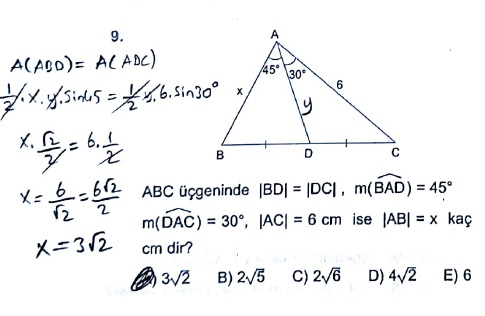 9.
A(ABD) = A(ADC)
1/2 · x · y · Sin45 = 1/2 · y · 6 · Sin30°
x · √2/2 = 6 · 1/2
x = 6/√2 = 6√2/2
x = 3√2
A
45° 30°
x
y
6
B
D
C
ABC üçgeninde |BD| = |DC| , m(BAD) = 45°
m(DAC) = 30°, |AC| = 6 cm ise |AB| = x kaç
cm dir?
) 3√2 B) 2√5 C) 2√6 D) 4√2 E) 6